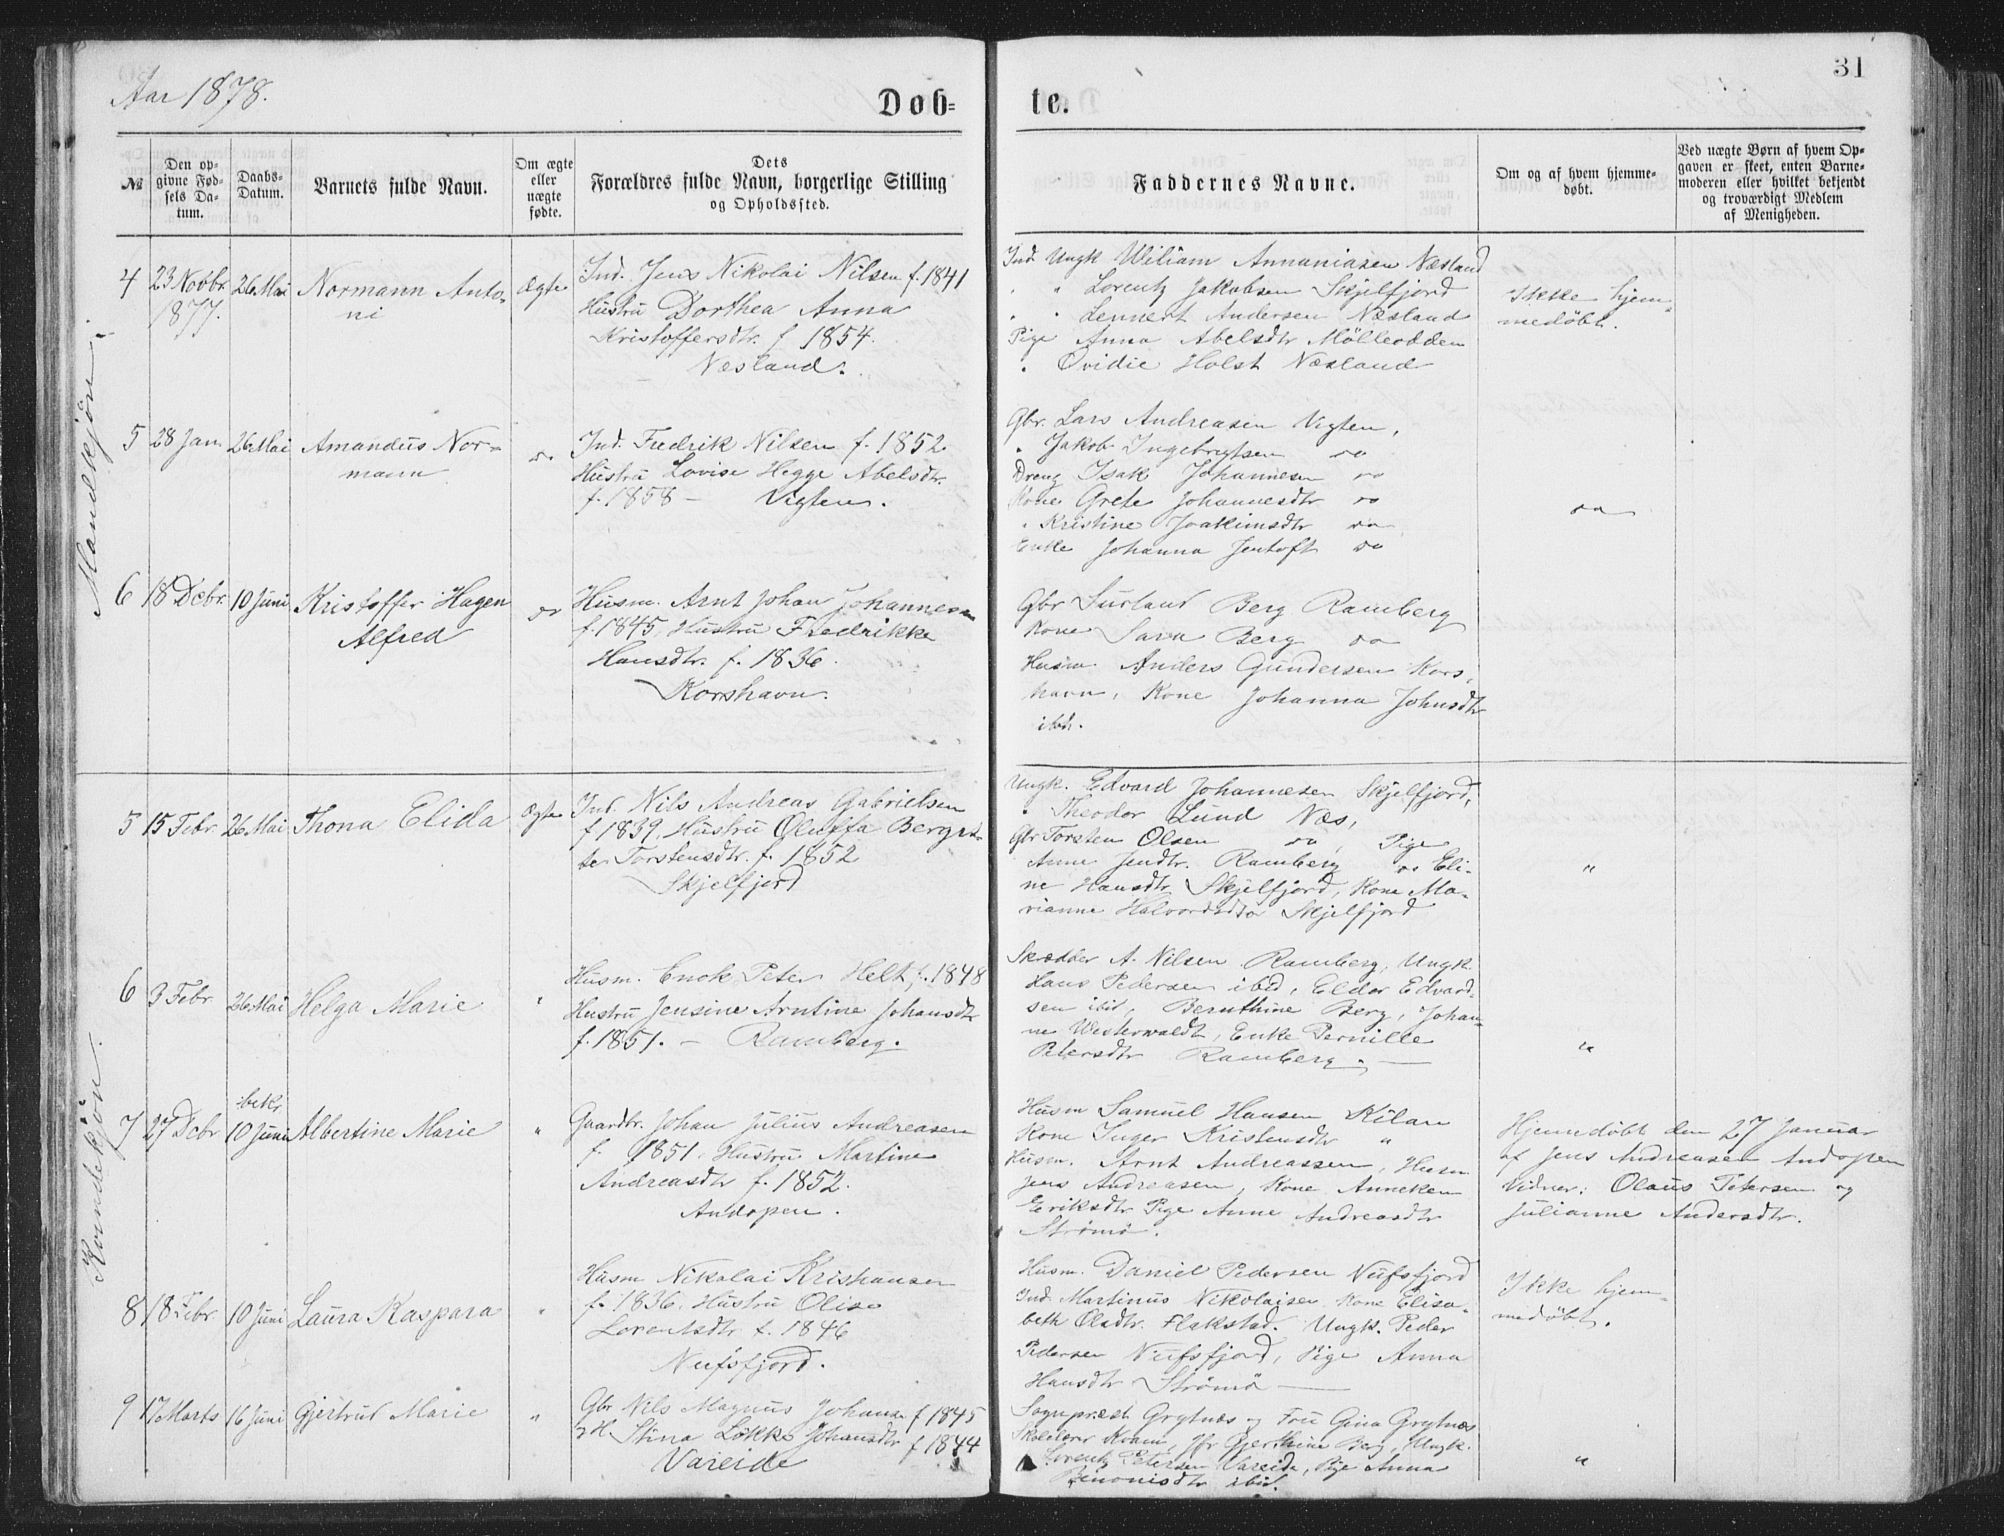 Aar 1878.
Døb-
te.
31
№
Den op-
givne Fød-
sels Da-
tum.
Daabs-
Datum.
Barnets fulde Navn.
Om ægte
eller
uægte
fødte.
Dets
Forældres fulde Navn, borgerlige Stilling
og Opholdssted.
Faddernes Navne.
Om og af hvem hjemme-
døbt.
Ved uægte Børn af hvem Op-
gaven er skeet, enten Barne-
moderen eller hvilket bekjendt
og troværdigt Medlem
af Menigheden.
Mandkjøn.
4
23 Novbr
1877.
26 Mai
Normann Anto-
ni
Ægte
Ind. Jens Nikolai Nilsen f. 1841
Hustru Dorthea Anna
Kristoffersdtr. f 1854.
Næsland.
Ind Ungk Wiliam Annaniasen Næsland
" " Lorentz Jakobsen Skjelfjord
" " Lennert Andersen Næsland
Pige Anna Abelsdtr Mölleodden
" Ovidie Holst Næsland
Ikke hjem-
medøbt.
5
28 Jan.
26 Mai
Amandus Nor-
mann
do
Ind. Fredrik Nilsen f. 1852
Hustru Lovise Hegge Abelsdtr.
f. 1858 - Vigten.
Gbr. Lars Andreasen Vigten,
" Jakob Ingebrigtsen do
Dreng Isak Johannesen do
Kone Grete Johannesdtr do
" Kristine Joakimsdtr do
Enke Johanna Jentoft do
do
6
18 Dcbr.
10 Juni
Kristoffer Hagen
Alfred
do
Husm. Arnt Johan Johannesen
f. 1845, Hustru Fredrikke
Hansdtr. f. 1836.
Korshavn.
Gbr Surland Berg Ramberg
Kone Sara Berg do
Husm. Anders Gundersen Kors-
havn, Kone Johanna Johnsdtr
ibd.
Kvindekjøn.
5
15 Febr.
26 Mai
Thona Elida
Ægte
Ind. Nils Andreas Gabrielsen
f 1839, Hustru Oluffa Bergit-
te Torstensdtr. f. 1852
Skjelfjord
Ungk. Edvard Johannesen Skjelfjord,
" Theodor Lund Næs,
Gbr Torsten Olsen do, Pige
Anne Jensdtr. Ramberg do Eli-
ne Hansdtr Skjelfjord, Kone Ma-
rianne Halvorsdtr Skjelfjord
"
6
3 Febr
26 Mai
Helga Marie
"
Husm. Enok Peter Helt f. 1848
Hustru Jensine Arntine Johansdtr
f. 1851. - Ramberg.
Skrædder A. Nilsen Ramberg, Ungk
Hans Pedersen ibid, Eldor Edvard-
sen ibit, Bernthine Berg, Johan-
ne Westerwaldt, Enke Pernille
Petersdtr Ramberg. -
"
7
27 Dcbr
bekr.
10 Juni
Albertine Marie
"
Gaardbr. Johan Julius Andreasen
f. 1851. Hustru Martine
Andreasdtr f. 1852.
Andopen.
Husm Samuel Hansen Kilan
Kone Inger Kristensdtr "
Husm. Arnt Andreassen, Husm
Jens Andreasen, Kone Anneken
Eriksdtr Pige Anne Andreasdtr
Strömö.
Hjemmedøbt den 27 Januar
af Jens Andreasen Andopen
Vidner: Olaus Petersen og
Julianne Andersdtr.
8
18 Febr
10 Juni
Laura Kaspara
"
Husm Nikolai Kristiansen
f. 1836, Hustru Olise
Lorentsdtr f. 1846
Nufsfjord.
Husm. Daniel Pedersen Nufsfjord
Ind. Martinus Nikolaisen Kone Elisa-
beth Olsdtr. Flakstad. Ungk. Peder
Pedersen Nufsfjord, Pige Anna
Hansdtr Strömö -
Ikke hjem-
medøbt.
9
17 Marts
16 Juni
Gjertrud Marie
"
Gbr Nils Magnus Johansen f 1845
H Stina Lökke Johansdtr f 1844
Vareide
Sognpræst Grytnæs og Fru Gina Grytnæs
Skolelærer Kvam, Jfr Gjerthine Berg, Ungk.
Lorentz Petersen Vareide, Pige Anna
Benonisdtr ibid.
"